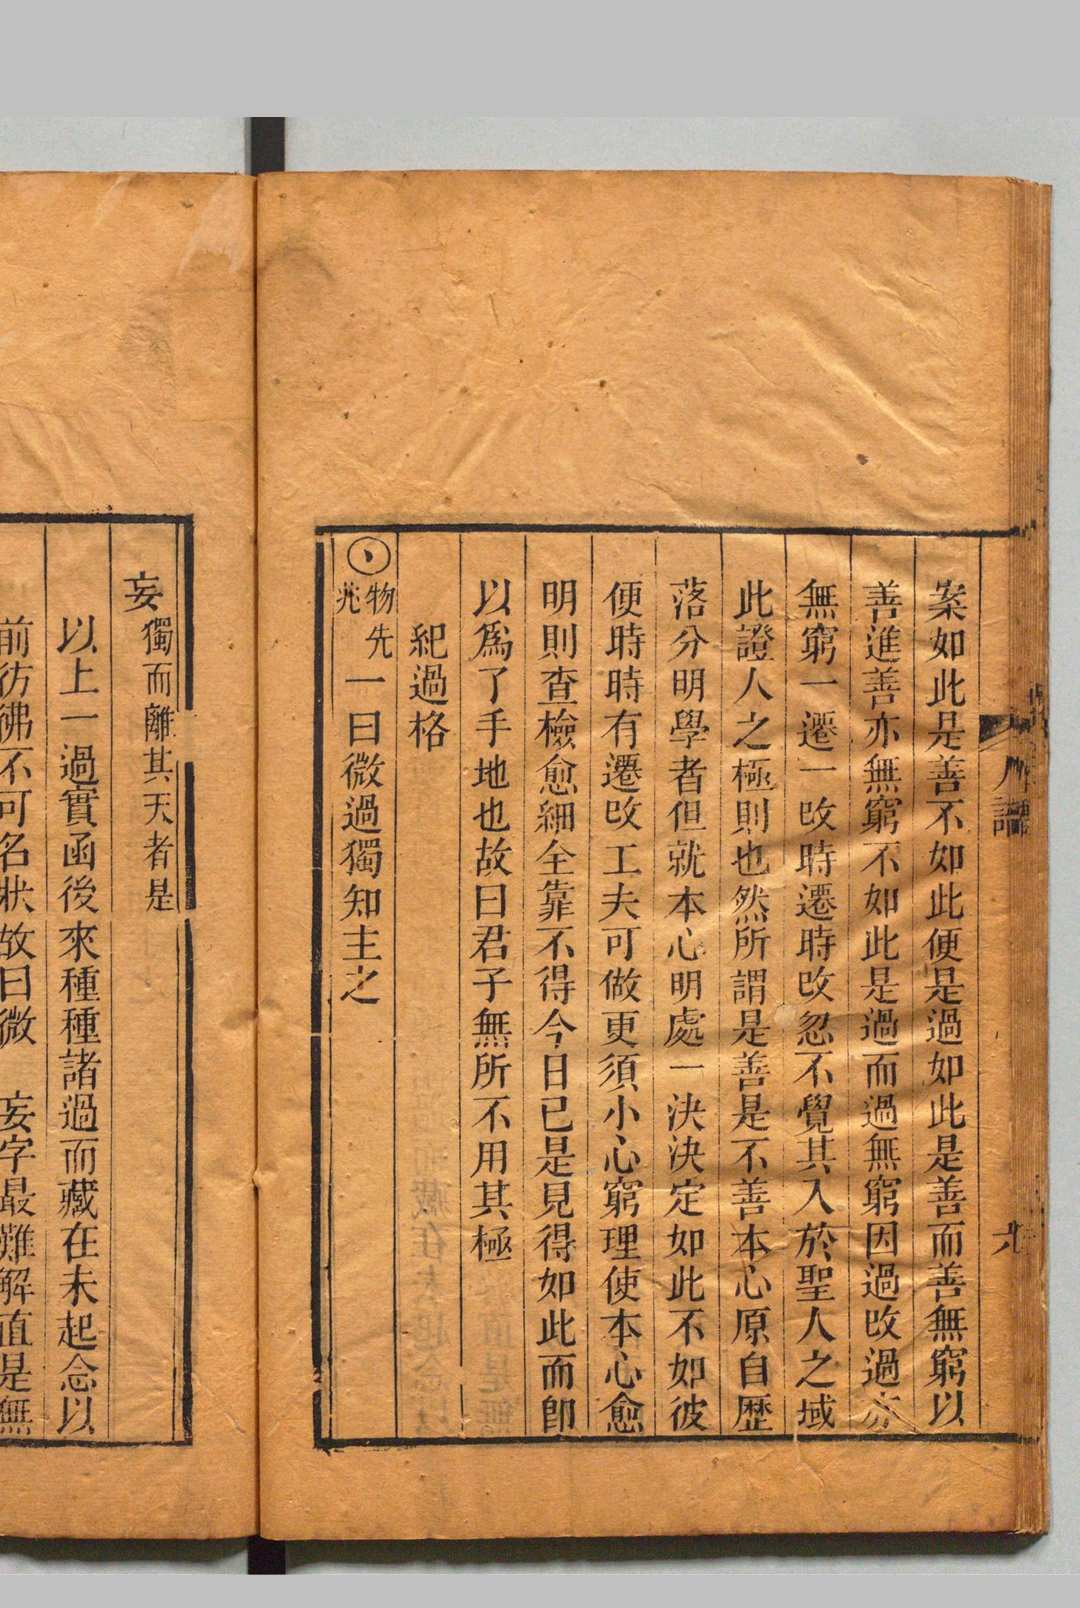 案如此是善不如此便是過如此是善而善無窮以
善進善亦無窮不如此是過而過無窮因過改過亦
無窮一遷一改時遷時改忽不覺其入於聖人之域
此證人之極則也然所謂是善是不善本心原自歷
落分明學者但就本心明處一決決定如此不如彼
便時時有遷改工夫可做更須小心窮理使本心愈
明則查檢愈細全靠不得今日已是見得如此而即
以爲了手地也故曰君子無所不用其極
紀過格
物先
兆
一曰微過獨知主之
妄獨而離其天者是
以上一過實函後來種種諸過而藏在未起念以
前彷彿不可名狀故曰微 妄字最難解直是無
人譜
九